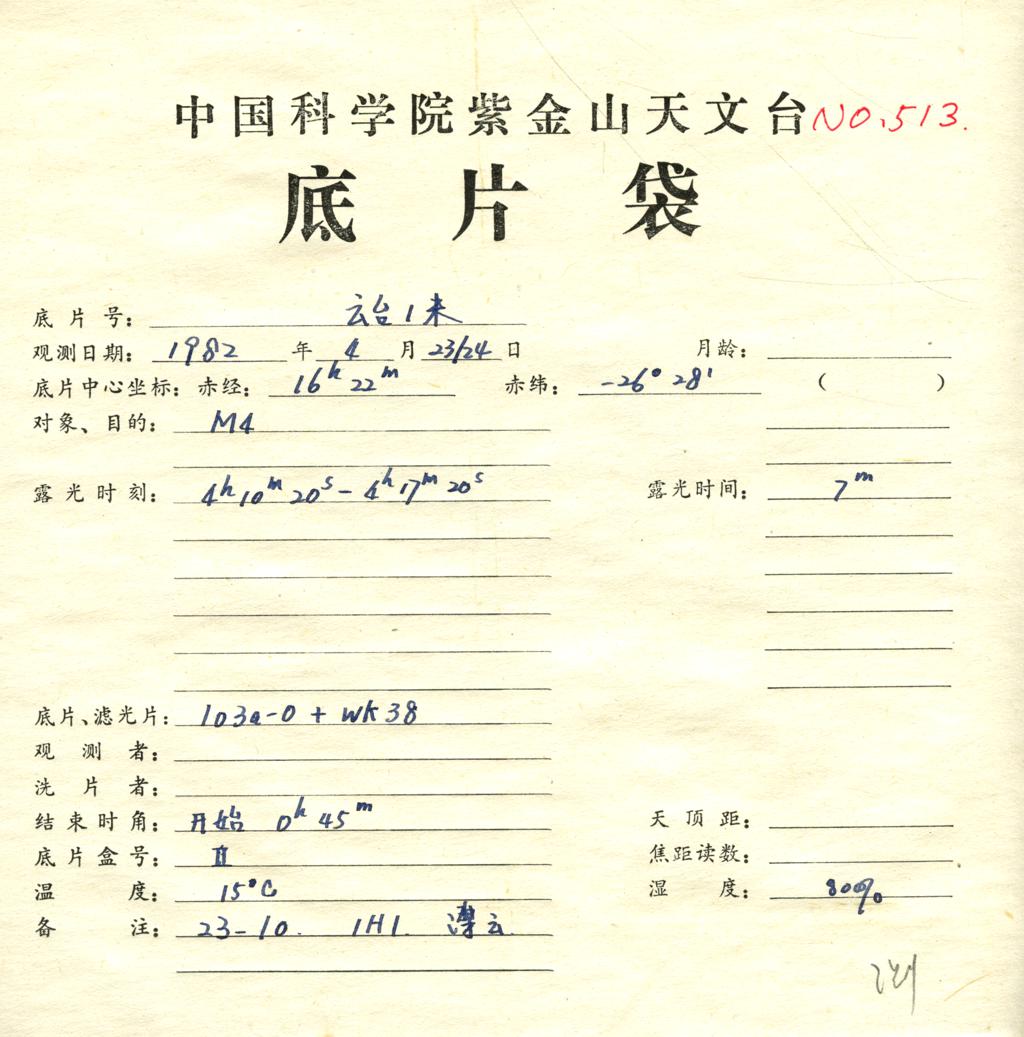 中国科学院紫金山天文台 NO.513.
底片袋
底片号: 云台1米
观测日期: 1982年4月23/24日 月龄:
底片中心坐标: 赤经: 16h22m 赤纬: -26°28' ( )
对象、目的: M4
露光时刻: 4h10m20s-4h17m20s 露光时间: 7m
底片、滤光片: 103a-O + WK38
观测者:
洗片者:
结束时角: 开始 0h45m 天顶距:
底片盒号: II 焦距读数:
温度: 15°C 湿度: 80%
备注: 23-10. 1H1. 云